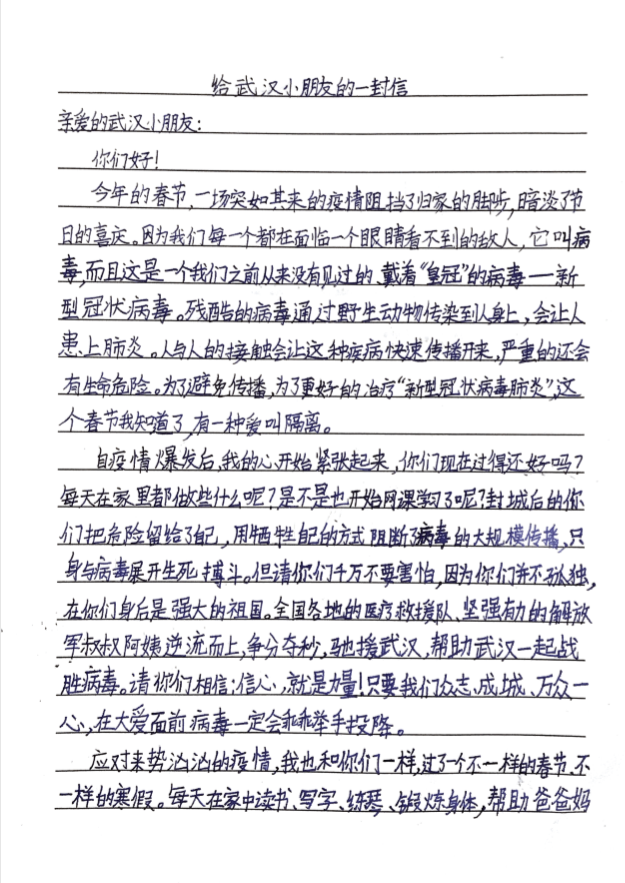 给武汉小朋友的一封信
亲爱的武汉小朋友:
你们好!
今年的春节,一场突如其来的疫情阻挡了归家的脚步,暗淡了节
日的喜庆。因为我们每一个都在面临一个眼睛看不到的敌人,它叫病
毒,而且这是一个我们之前从来没有见过的、戴着“皇冠”的病毒——新
型冠状病毒。残酷的病毒通过野生动物传染到人身上,会让人
患上肺炎。人与人的接触会让这种疾病快速传播开来,严重的还会
有生命危险。为了避免传播,为了更好的治疗“新型冠状病毒肺炎”,这
个春节我知道了,有一种爱叫隔离。
自疫情爆发后,我的心开始紧张起来,你们现在过得还好吗?
每天在家里都做些什么呢?是不是也开始网课学习了呢?封城后的你
们把危险留给了自己,用牺牲自己的方式阻断了病毒的大规模传播,只
身与病毒展开生死搏斗。但请你们千万不要害怕,因为你们并不孤独,
在你们身后是强大的祖国。全国各地的医疗救援队、坚强有力的解放
军叔叔阿姨逆流而上,争分夺秒,驰援武汉,帮助武汉一起战
胜病毒。请你们相信:信心,就是力量!只要我们众志成城、万众一
心,在大爱面前病毒一定会乖乖举手投降。
应对来势汹汹的疫情,我也和你们一样,过了一个不一样的春节、不
一样的寒假。每天在家中读书、写字、练琴、锻炼身体,帮助爸爸妈